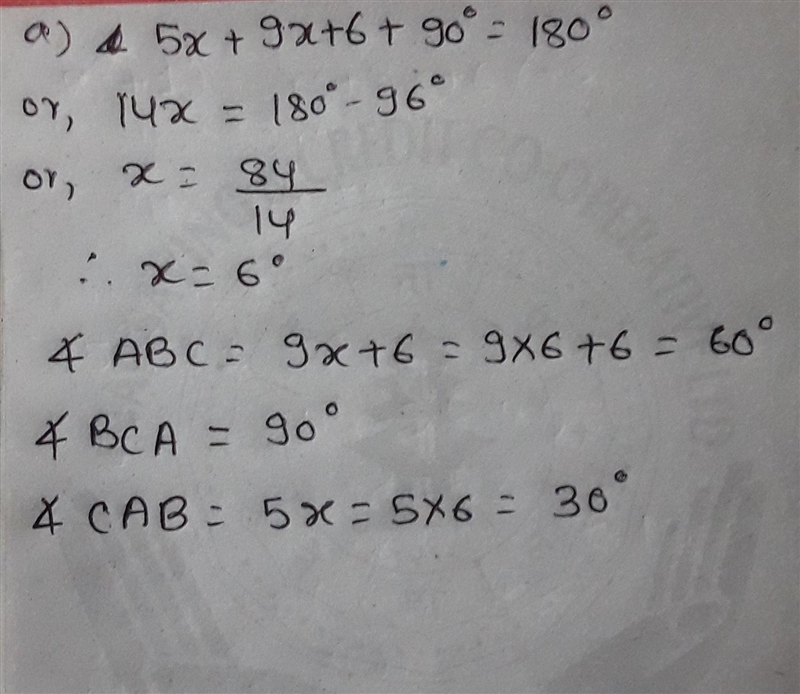 a) ∡ 5x + 9x + 6 + 90° = 180°
or, 14x = 180° - 96°
or, x = 84/14
∴ x = 6°
∡ ABC = 9x + 6 = 9×6 + 6 = 60°
∡ BCA = 90°
∡ CAB = 5x = 5×6 = 30°